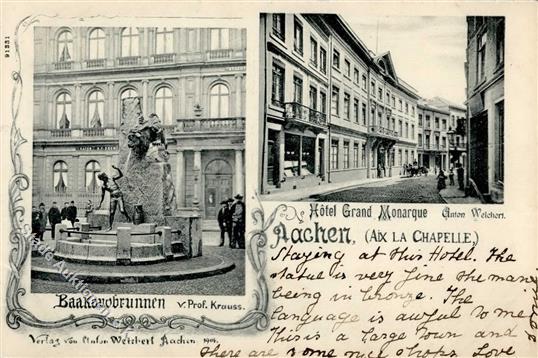 91331
Hôtel Grand Monarque Anton Weichert.
Aachen, (AIX LA CHAPELLE,)
Baakauvbrunnen v. Prof. Krauss.
Verlag von Anton Weichert Aachen 1904.
Staying at this Hotel. The
statue is very fine the man
being in bronze. The
language is awful to me
This is a large town and
there are some nice shops Love